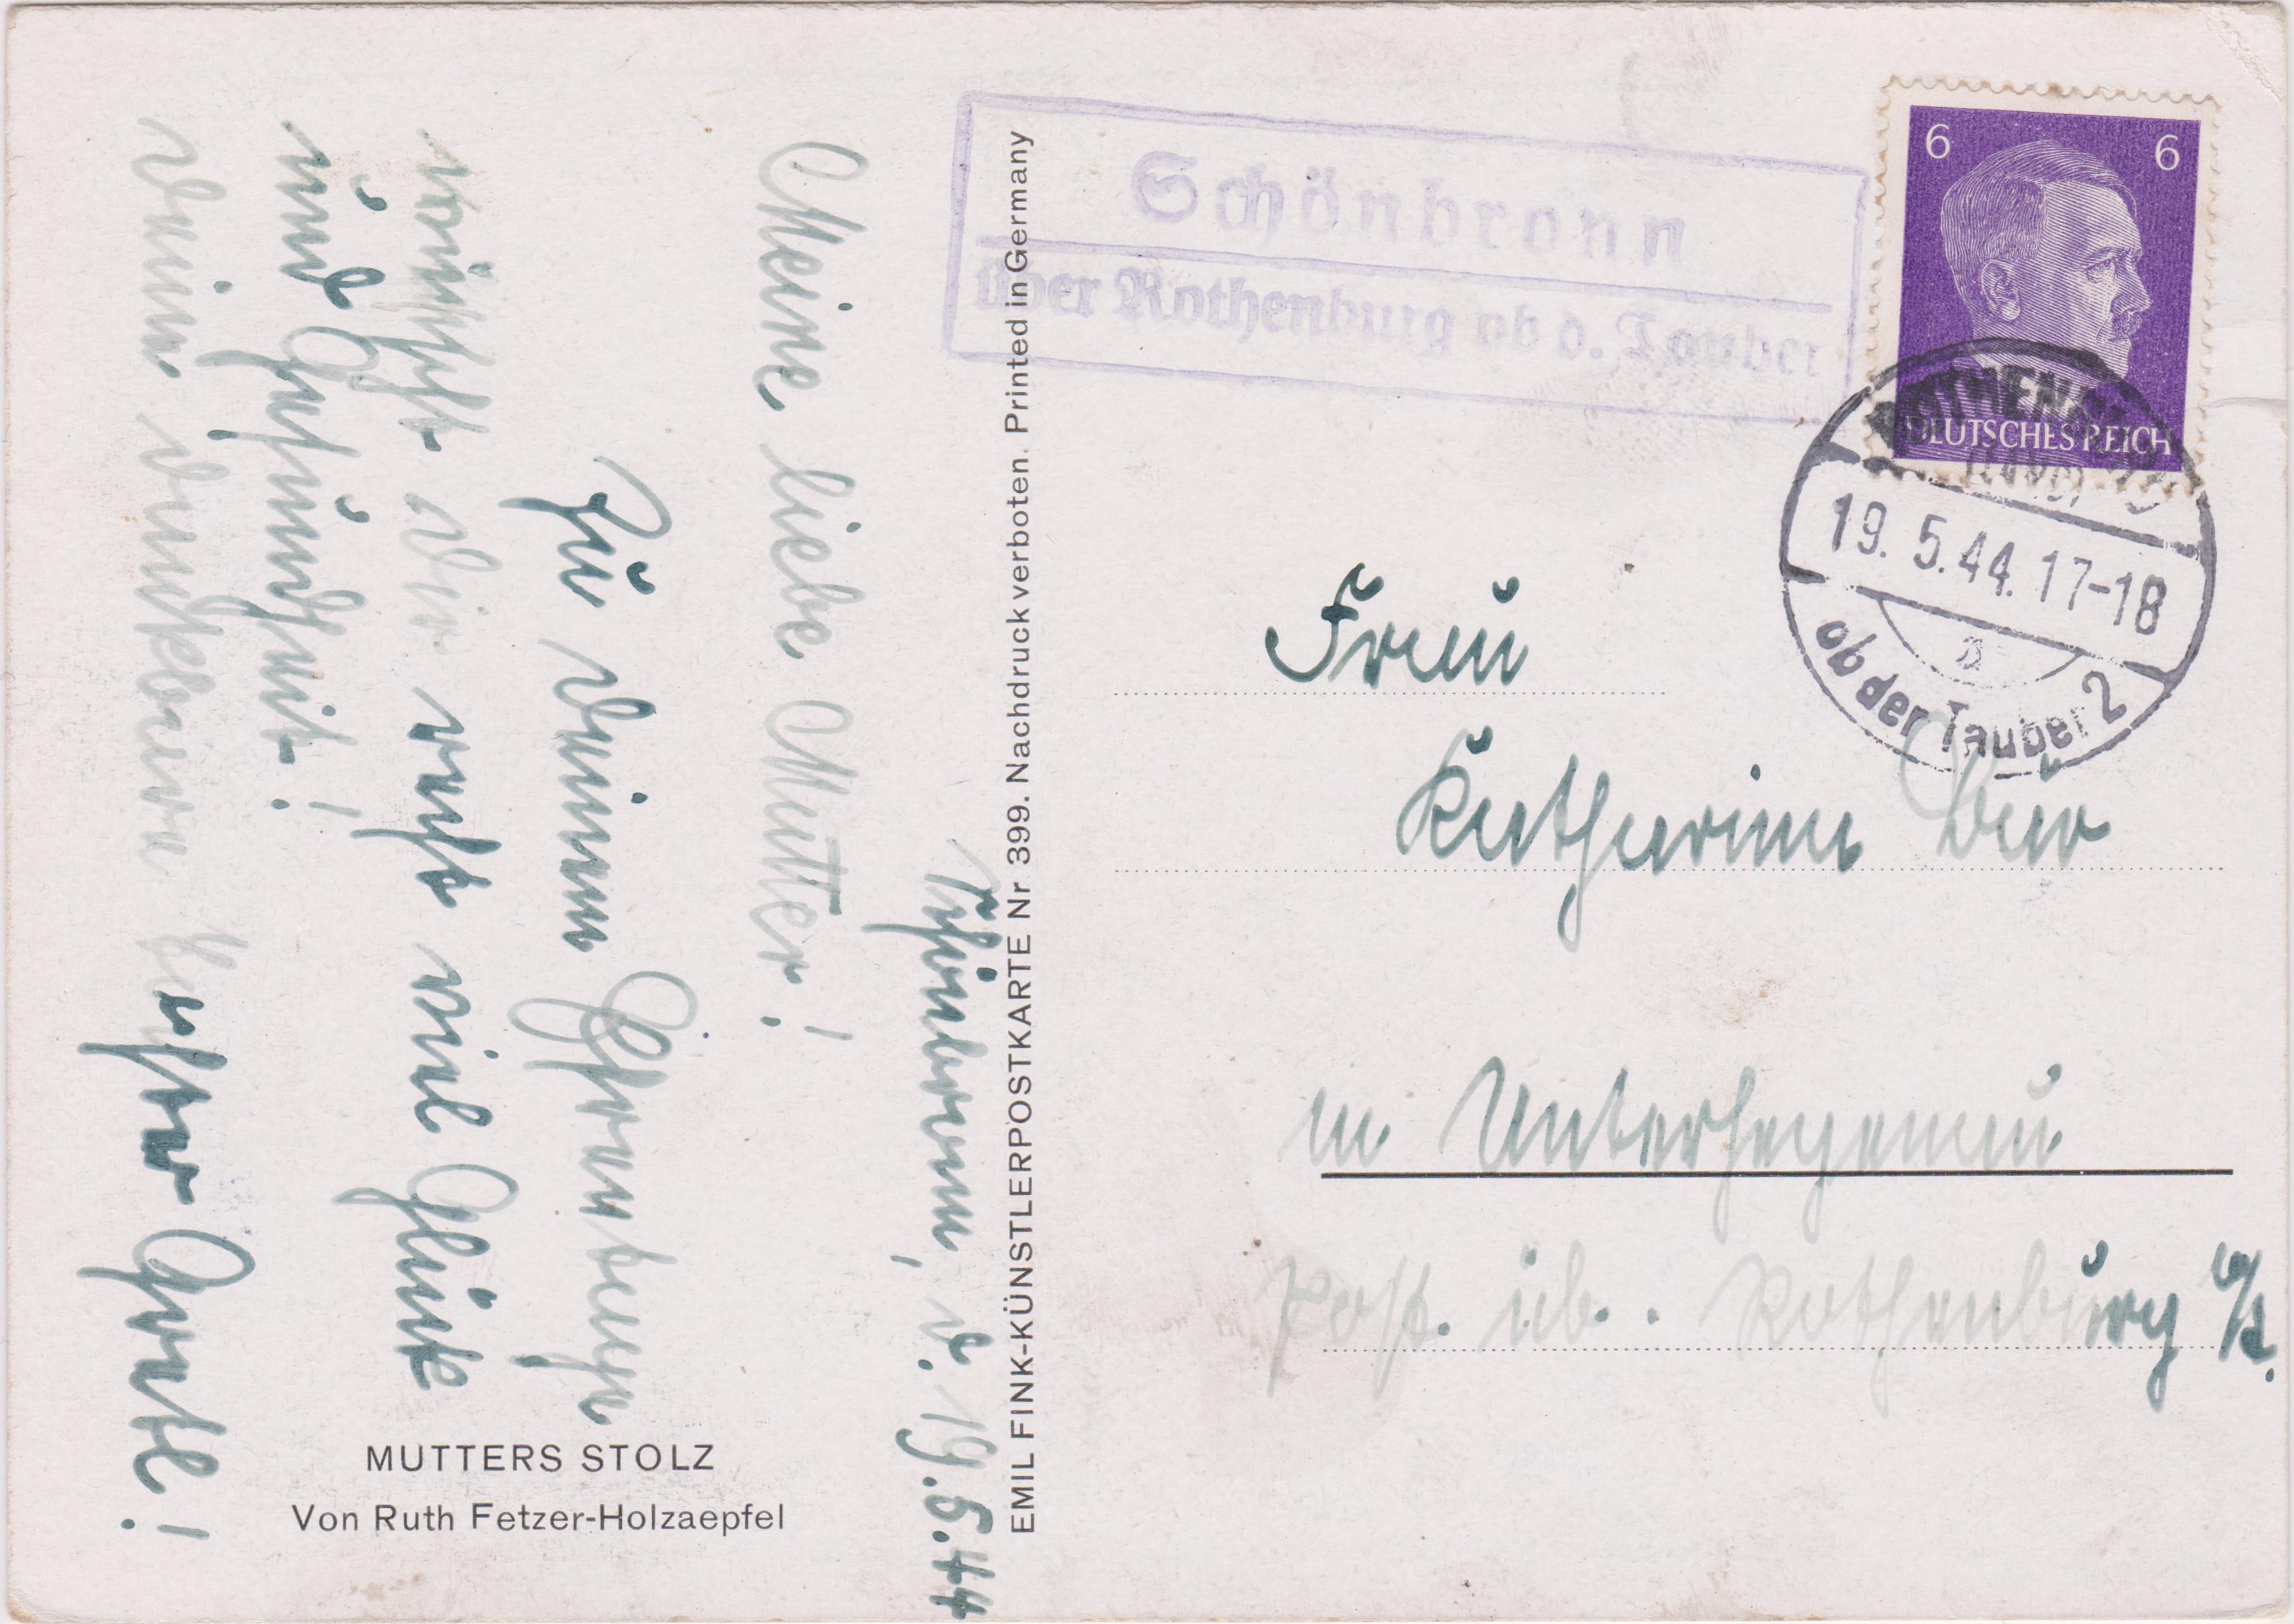 Schönbronn
über Rothenburg ob d. Tauber
6 6
DEUTSCHES REICH
ROTHENBURG
19.5.44.17-18
a
ob der Tauber 2
Schönbronn, d. 19.5.44
Meine liebe Mutter!
Zu deinem Ehrentage
wünscht dir recht viel Glück
und Gesundheit!
deine dankbare Tochter Gretl!
MUTTERS STOLZ
Von Ruth Fetzer-Holzaepfel
EMIL FINK-KÜNSTLERPOSTKARTE Nr 399. Nachdruck verboten. Printed in Germany
Frau
Katharina
in Unterhegenau
Post üb. Rothenburg o/T.